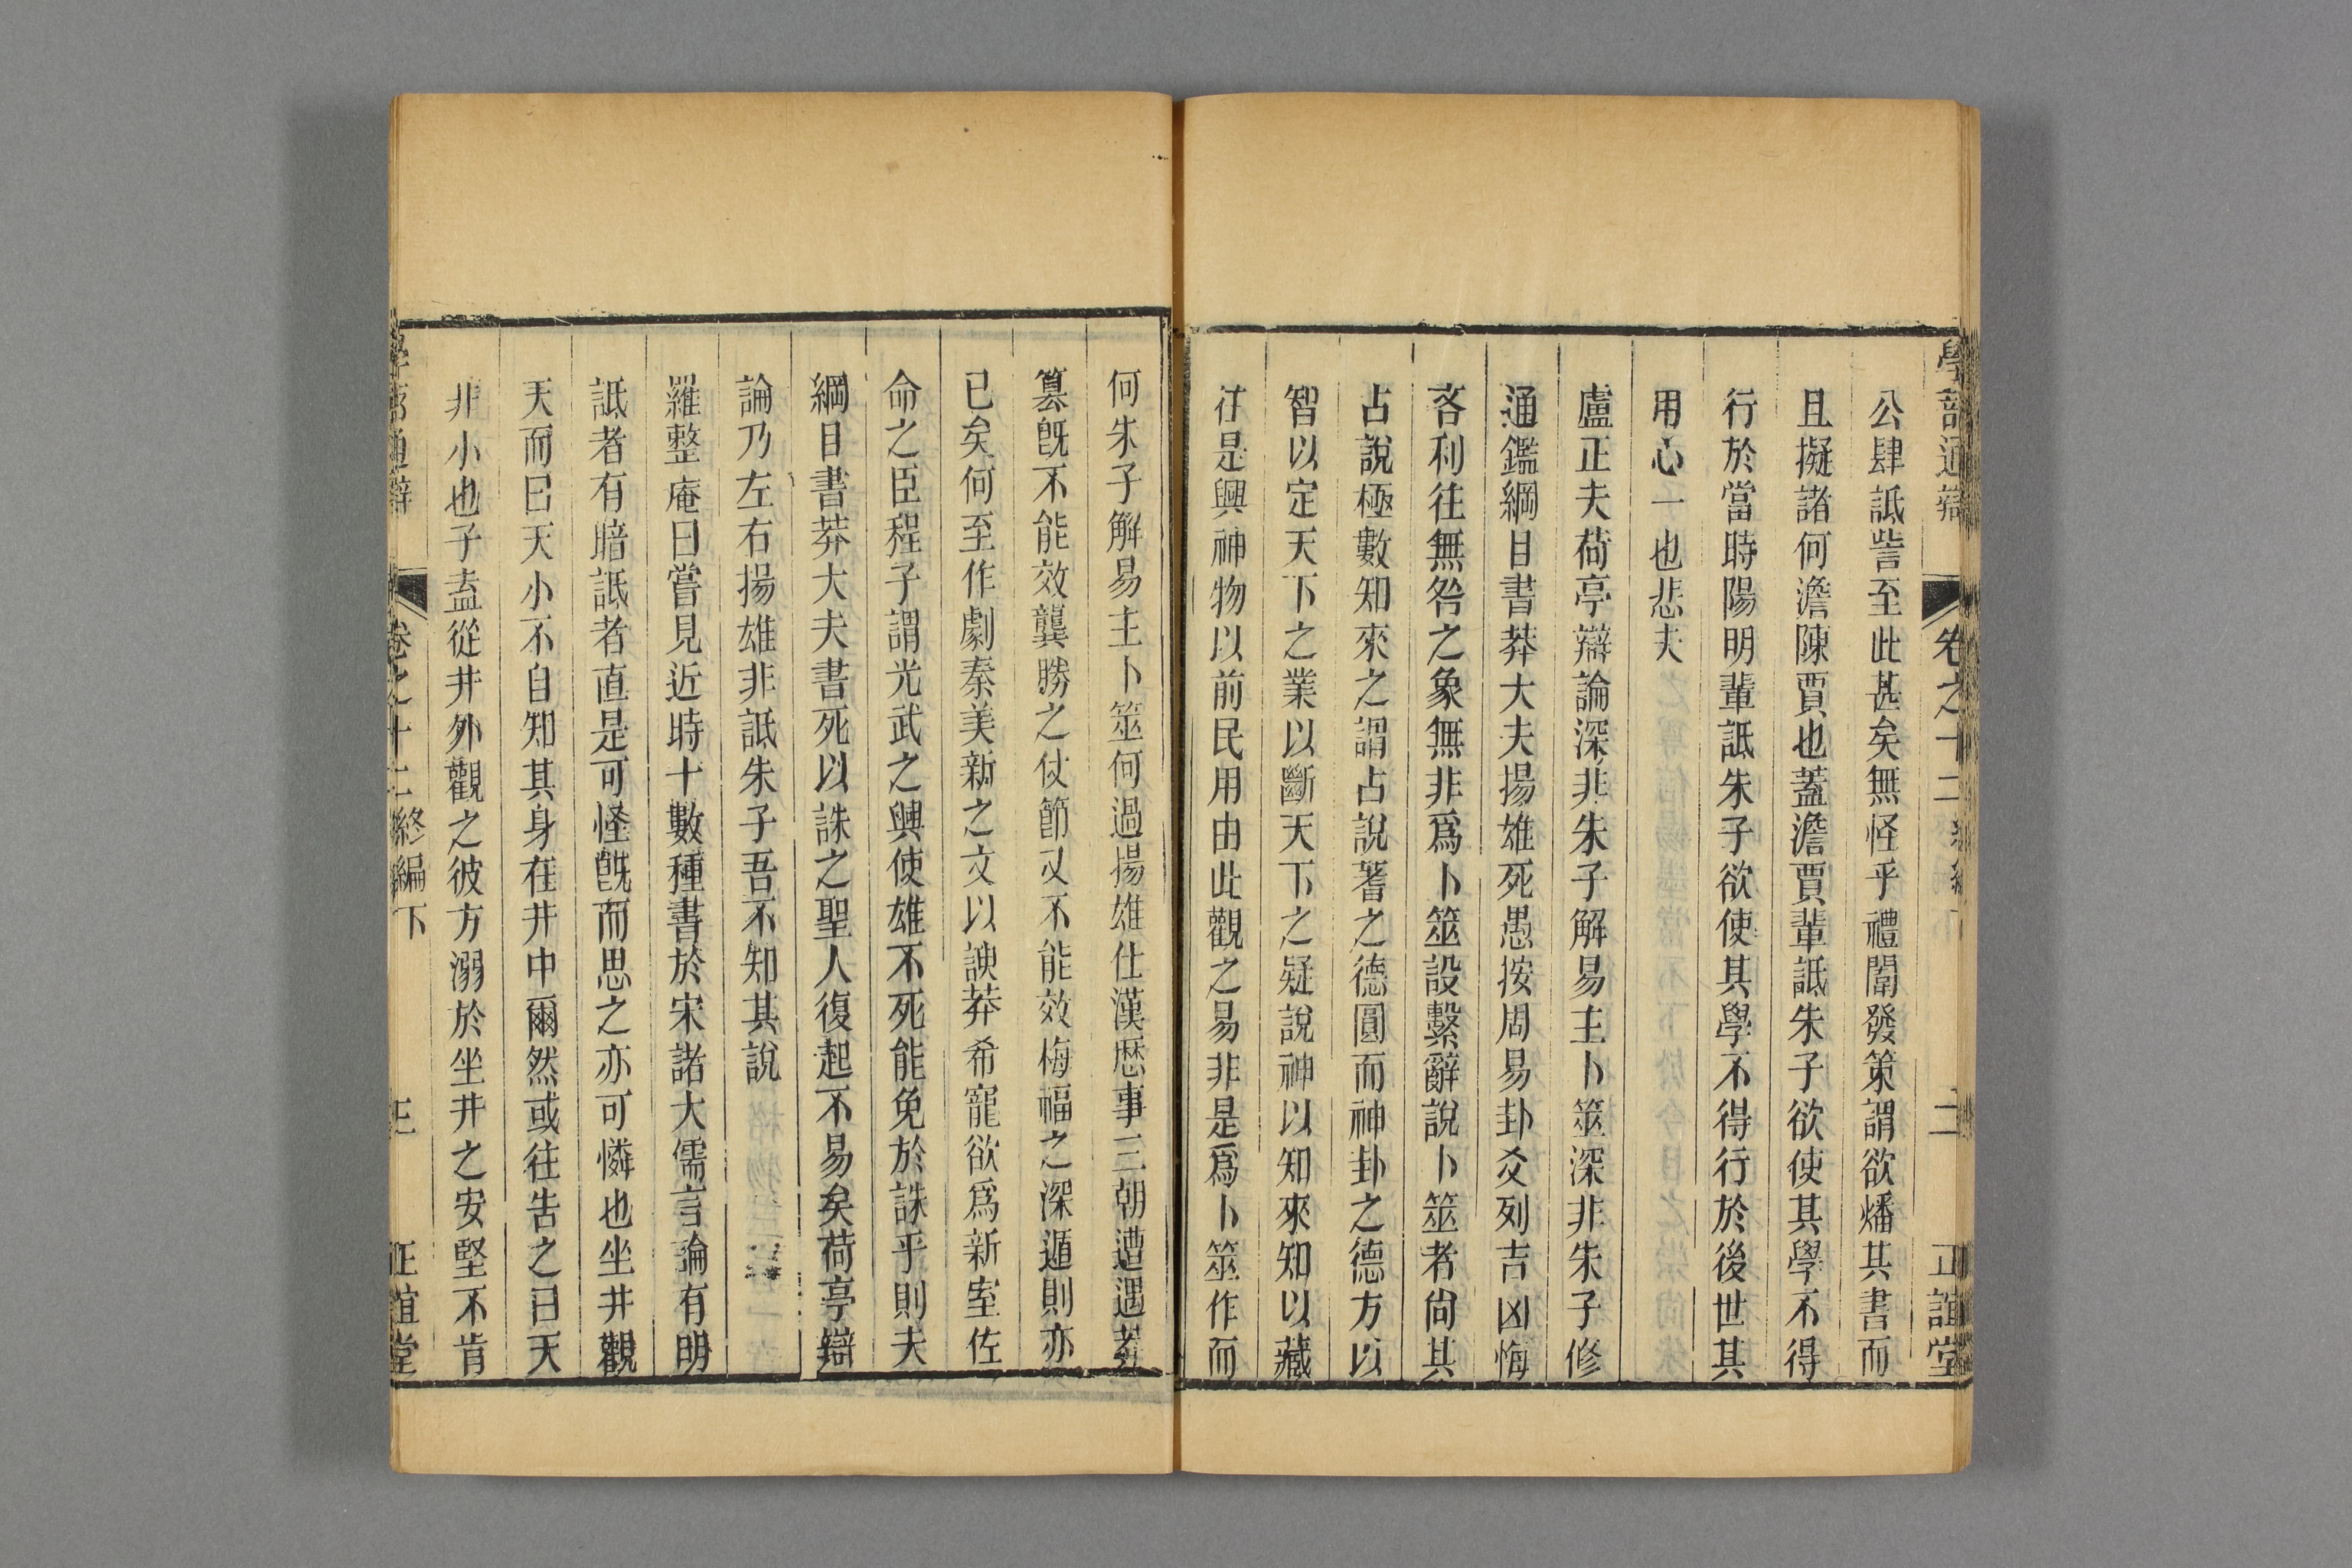 學蔀通辯　卷之十二終編下　二　正誼堂
公肆詆訾至此甚矣無怪乎禮闈發策謂欲燔其書而
且擬諸何澹陳賈也蓋澹賈輩詆朱子欲使其學不得
行於當時陽明輩詆朱子欲使其學不得行於後世其
用心一也悲夫
盧正夫荷亭辯論深非朱子解易主卜筮深非朱子修
通鑑綱目書莽大夫揚雄死愚按周易卦爻列吉凶悔
吝利往無咎之象無非爲卜筮設繫辭說卜筮者尙其
占說極數知來之謂占說蓍之德圓而神卦之德方以
智以定天下之業以斷天下之疑說神以知來知以藏
往是興神物以前民用由此觀之易非是爲卜筮作而
何朱子解易主卜筮何過揚雄仕漢歷事三朝遭遇莽
篡旣不能效龔勝之仗節又不能效梅福之深遁則亦
已矣何至作劇秦美新之文以諛莽希寵欲爲新室佐
命之臣程子謂光武之興使雄不死能免於誅乎則夫
綱目書莽大夫書死以誅之聖人復起不易矣荷亭辯
論乃左右揚雄非詆朱子吾不知其說
羅整庵曰嘗見近時十數種書於宋諸大儒言論有明
詆者有暗詆者直是可怪旣而思之亦可憐也坐井觀
天而曰天小不自知其身在井中爾然或往告之曰天
非小也子盍從井外觀之彼方溺於坐井之安堅不肯
學蔀通辯　卷之十二終編下　三　正誼堂